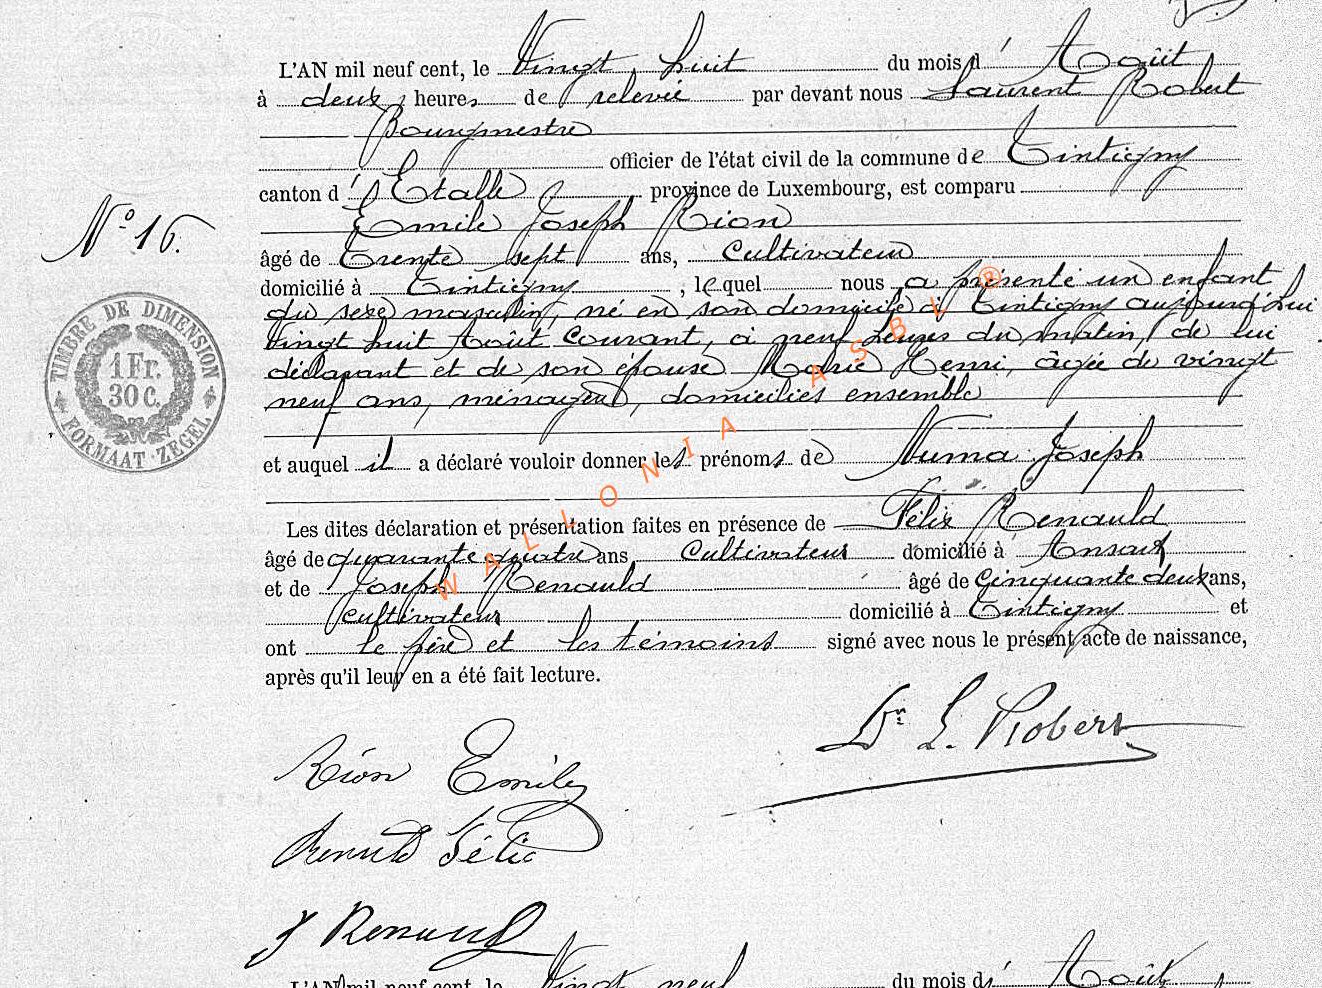 L'AN mil neuf cent, le Vingt huit du mois d' Août
à deux heures de relevée par devant nous Laurent Robert
Bourgmestre
officier de l'état civil de la commune de Tintigny
canton d' Etalle province de Luxembourg, est comparu
Emile Joseph Rion
N° 16.
âgé de trente sept ans, Cultivateur
domicilié à Tintigny, lequel nous a présenté un enfant
du sexe masculin, né en son domicile à Tintigny aujourd'hui
vingt huit Août courant, à neuf heures du matin, de lui
déclarant et de son épouse Marie Henri, âgée de vingt
neuf ans, ménagère, domiciliés ensemble
TIMBRE DE DIMENSION
1 Fr.
30 C.
FORMAAT · ZEGEL
et auquel il a déclaré vouloir donner les prénoms de Numa Joseph
Les dites déclaration et présentation faites en présence de Félix Renauld
âgé de quarante quatre ans Cultivateur domicilié à Ansart
et de Joseph Renauld âgé de Cinquante deux ans,
cultivateur domicilié à Tintigny et
ont le père et les témoins signé avec nous le présent acte de naissance,
après qu'il leur en a été fait lecture.
Dr L. Robert
Rion Emile
Renauld Félix
J Renauld
WALLONIA ASBL ®
L'AN mil neuf cent, le Vingt neuf du mois d' Août